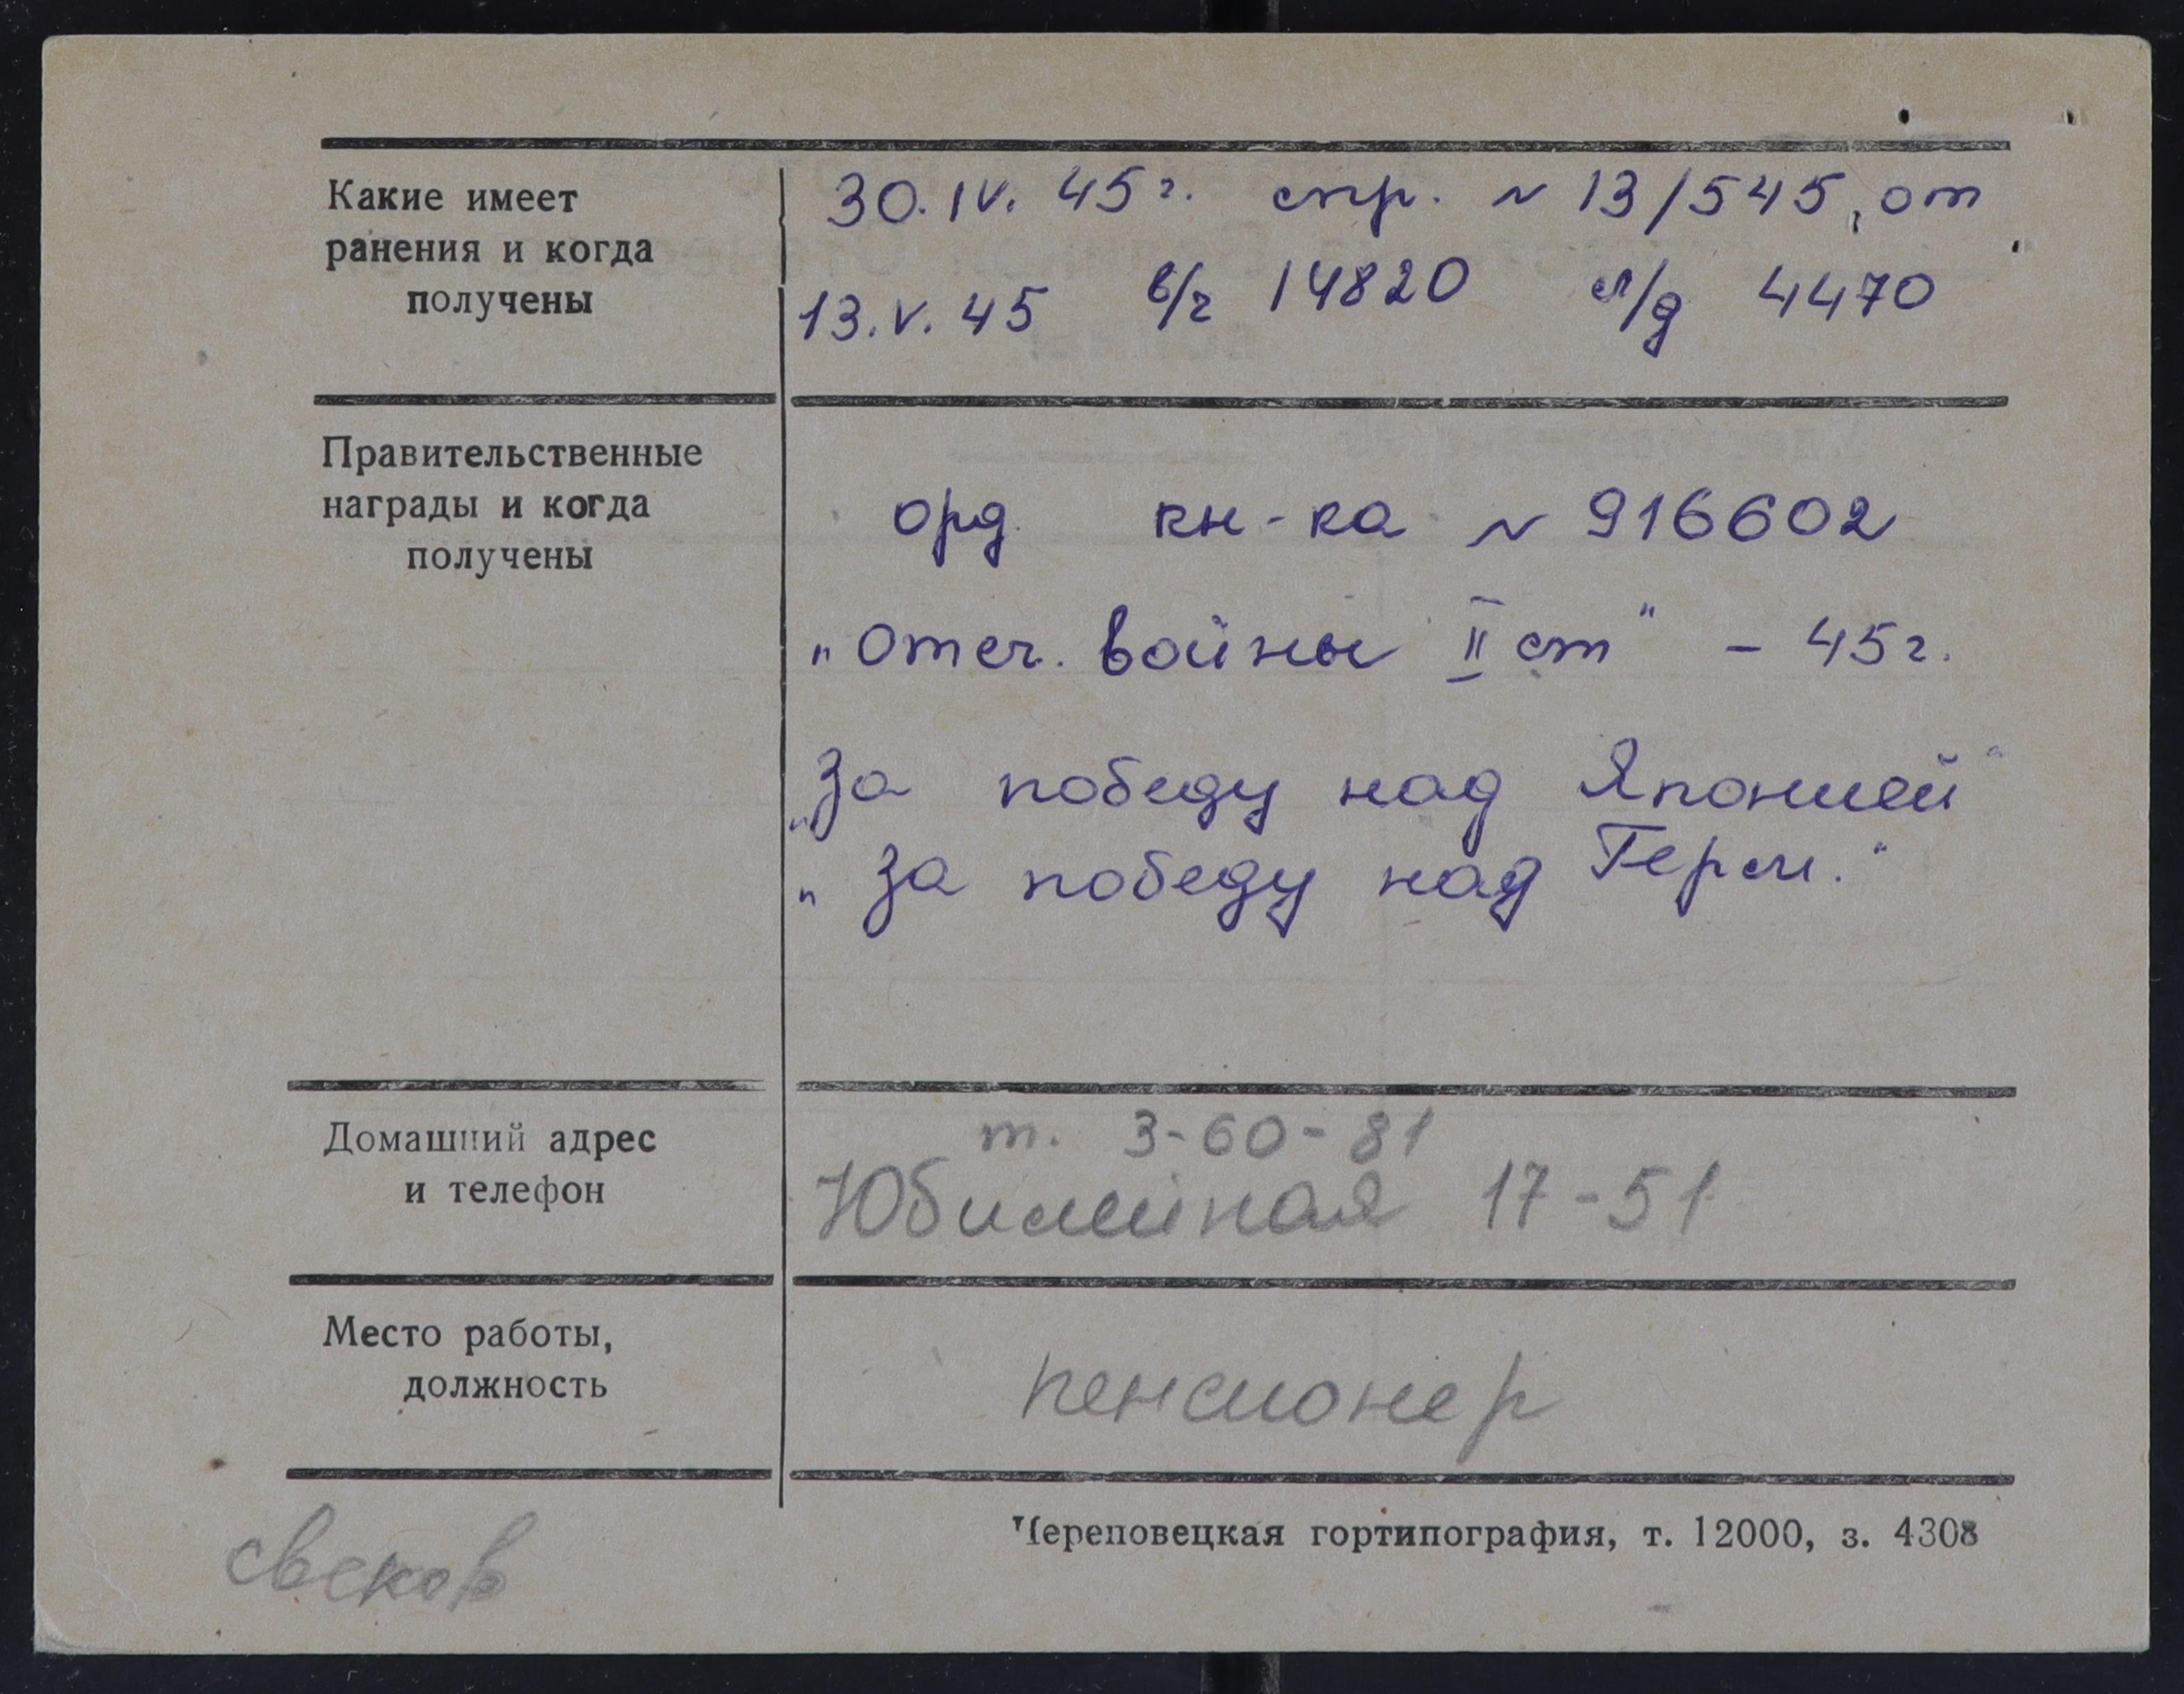 Какие имеет
ранения и когда
получены
30.IV.45г. спр. N 13/545, от
13.V.45 в/ч 14820 л/д 4470
Правительственные
награды и когда
получены
орд. кн-ка N 916602
„Отеч. войны II ст" - 45г.
„За победу над Японией"
„За победу над Герм."
Домашний адрес
и телефон
т. 3-60-81
Юбилейная 17-51
Место работы,
должность
пенсионер
Череповецкая гортипография, т. 12000, з. 4308